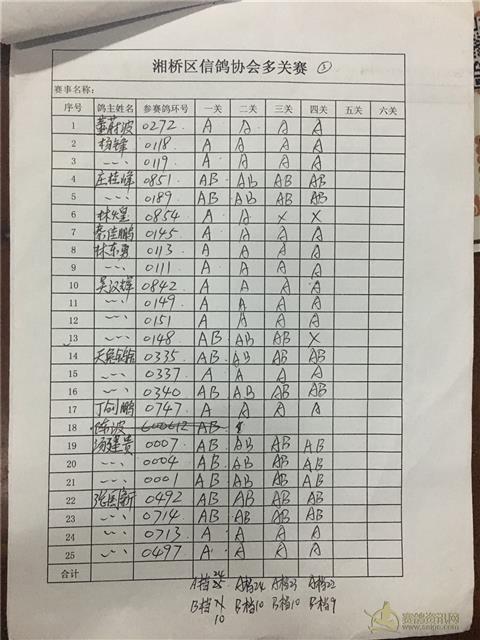 湘桥区信鸽协会多关赛 ③
赛事名称:
序号 鸽主姓名 参赛鸽环号 一关 二关 三关 四关 五关 六关
1 董蔚波 0272 A A A A
2 杨锋 0118 A A A A
3 〃 0119 A A A A
4 庄桂峰 0851 AB AB AB AB
5 〃 0189 AB AB AB AB
6 林火皇 0854 A A X X
7 蔡佳鹏 0145 A A A A
8 林东勇 0113 A A A A
9 〃 0111 A A A A
10 吴汉辉 0842 A A A A
11 〃 0149 A A A A
12 〃 0151 A A A A
13 〃 0148 AB AB AB X
14 0335 AB AB AB AB
15 〃 0337 A A A A
16 〃 0340 AB AB AB AB
17 丁创鹏 0747 A A A A
18 陈波 AB
19 汤建贵 0007 AB AB AB AB
20 〃 0004 AB AB AB AB
21 〃 0001 AB AB AB AB
22 0492 AB AB AB AB
23 〃 0714 AB AB AB AB
24 〃 0713 A A A A
25 〃 0497 A A A A
合计
A档 24 A档24 A档23 A档22
B档 10 B档10 B档10 B档9
赛鸽资讯网
www.saige.com